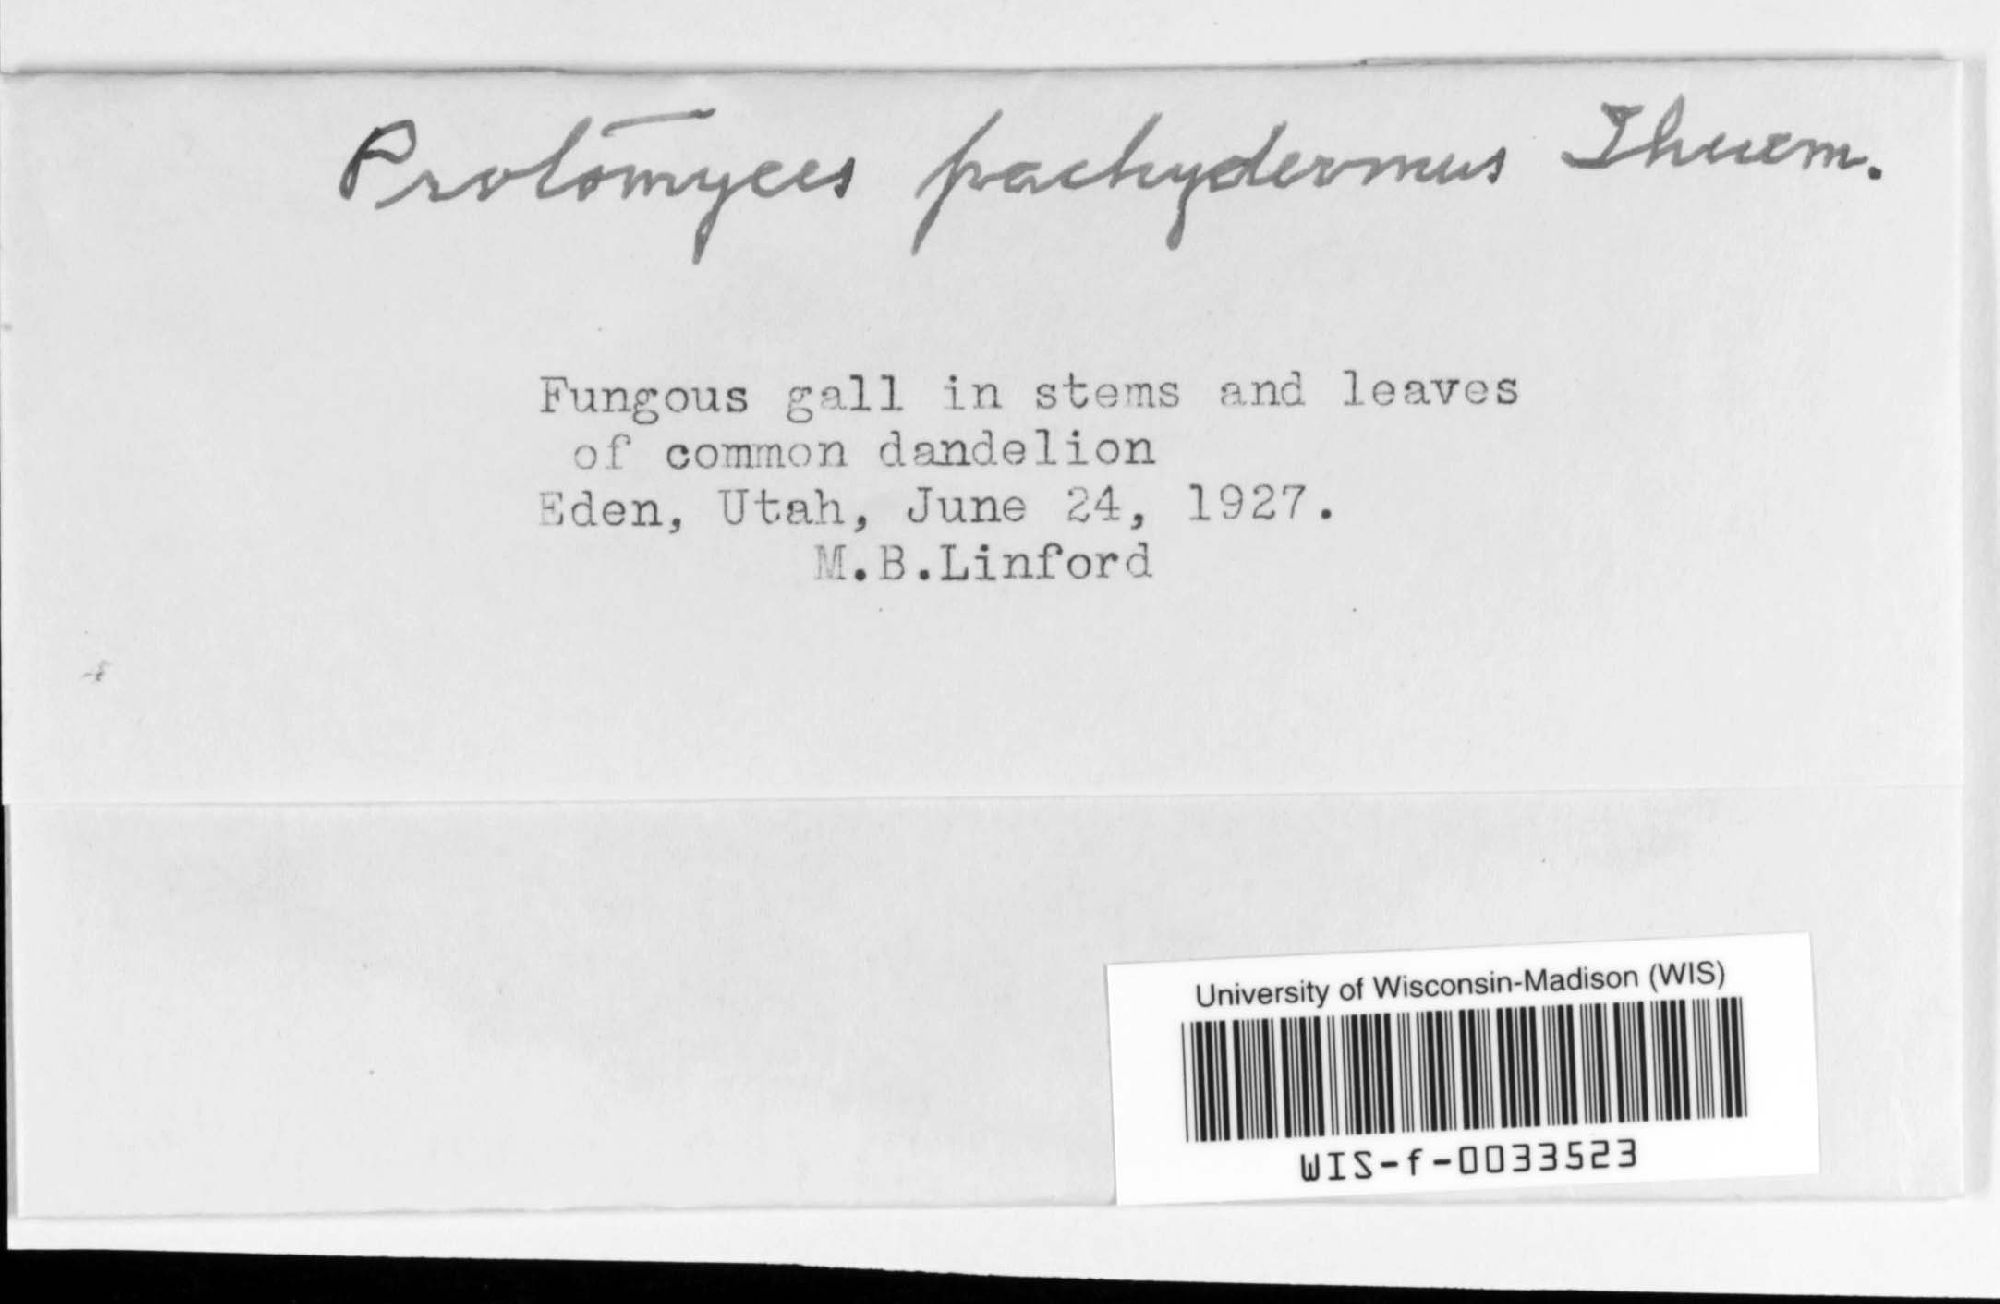 Protomyces pachydermus Thuem.
Fungous gall in stems and leaves
of common dandelion
Eden, Utah, June 24, 1927.
M.B.Linford
University of Wisconsin-Madison (WIS)
WIS-f-0033523